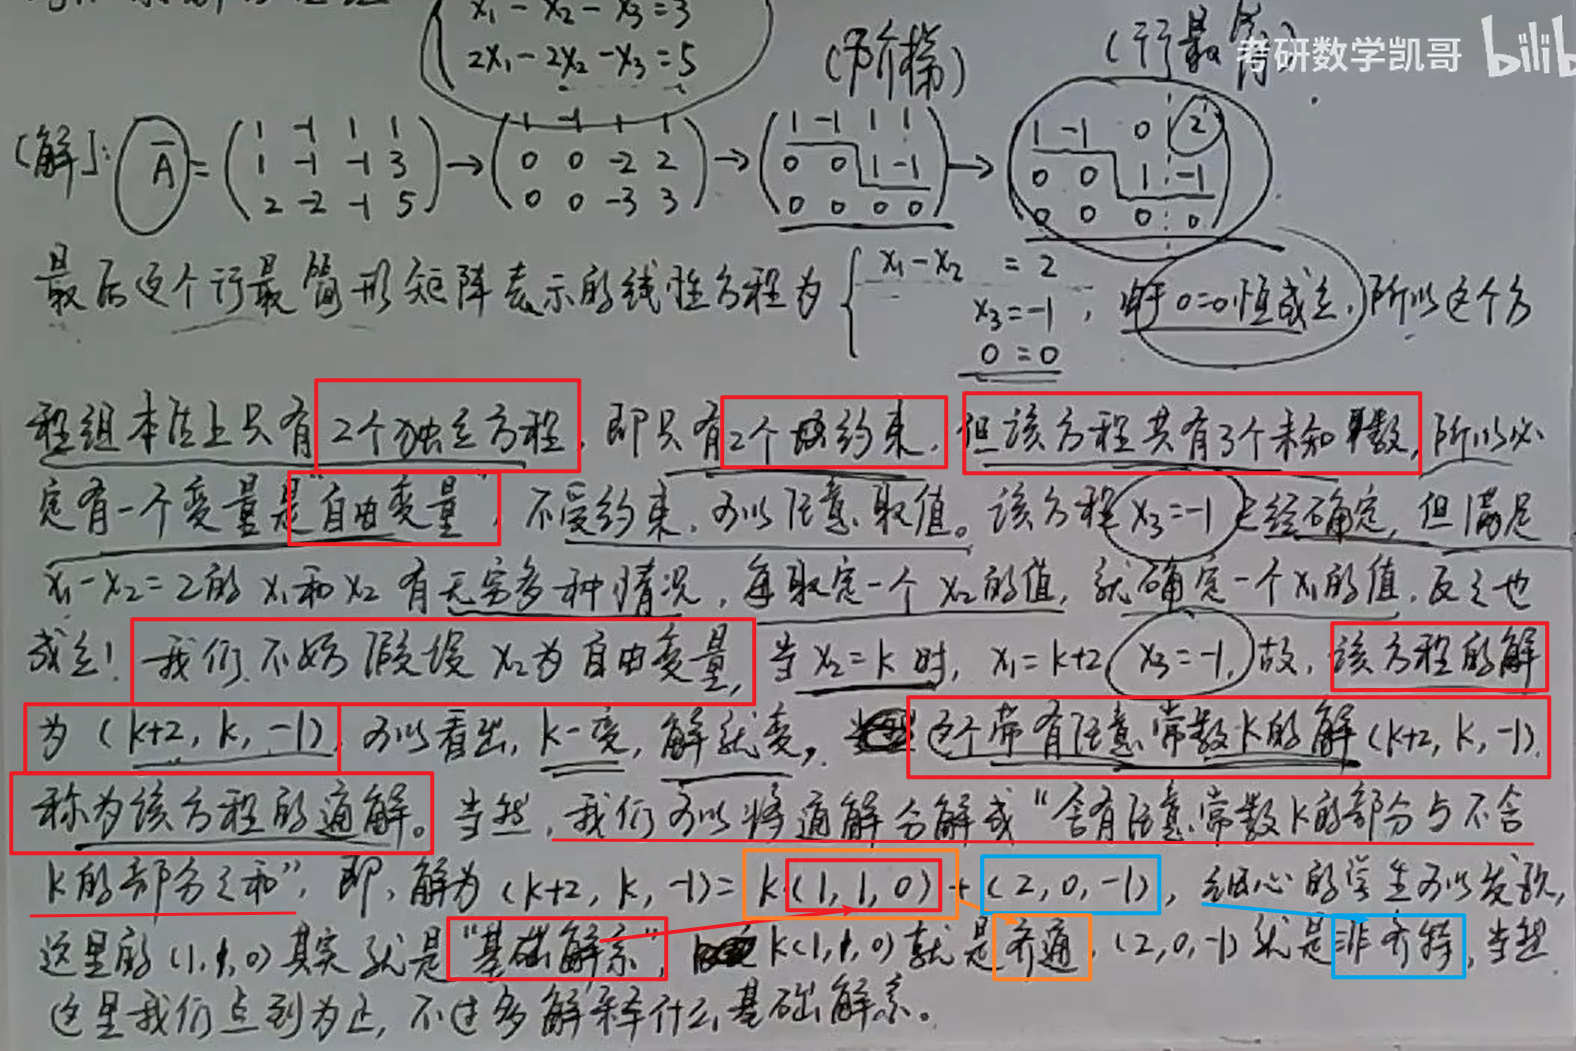 x₁-x₂-x₃=3
2x₁-2x₂-x₃=5
(阶梯)
(行最简)
考研数学凯哥 bilib
[解]: Ā = (1 -1 1 1 → (1 -1 1 1 → (1 -1 1 1 → (1 -1 0 2
1 -1 -1 3 0 0 -2 2 0 0 1 -1 0 0 1 -1
2 -2 -1 5) 0 0 -3 3) 0 0 0 0) 0 0 0 0)
最后这个行最简形矩阵表示的线性方程为 { x₁-x₂ = 2
x₃=-1 , 由于0=0恒成立,所以这个方
0=0
程组本质上只有2个独立方程,即只有2个约束,但该方程共有3个未知数,所以必
定有一个变量是"自由变量",不受约束,可以任意取值。该方程x₃=-1已经确定,但满足
x₁-x₂=2的x₁和x₂有无穷多种情况,每取定一个x₂的值,就确定一个x₁的值,反之也
成立!我们不妨假设x₂为自由变量,当x₂=k时,x₁=k+2,x₃=-1,故,该方程的解
为(k+2,k,-1),可以看出,k一变,解就变,这个带有任意常数k的解(k+2,k,-1),
称为该方程的通解。当然,我们可以将通解分解成"含有任意常数k的部分与不含
k的部分之和",即,解为(k+2,k,-1)=k(1,1,0)+(2,0,-1),细心的学生可以发现,
这里的(1,1,0)其实就是"基础解系",k(1,1,0)就是齐通,(2,0,-1)就是非齐特,当然
这里我们点到为止,不过多解释什么是基础解系。